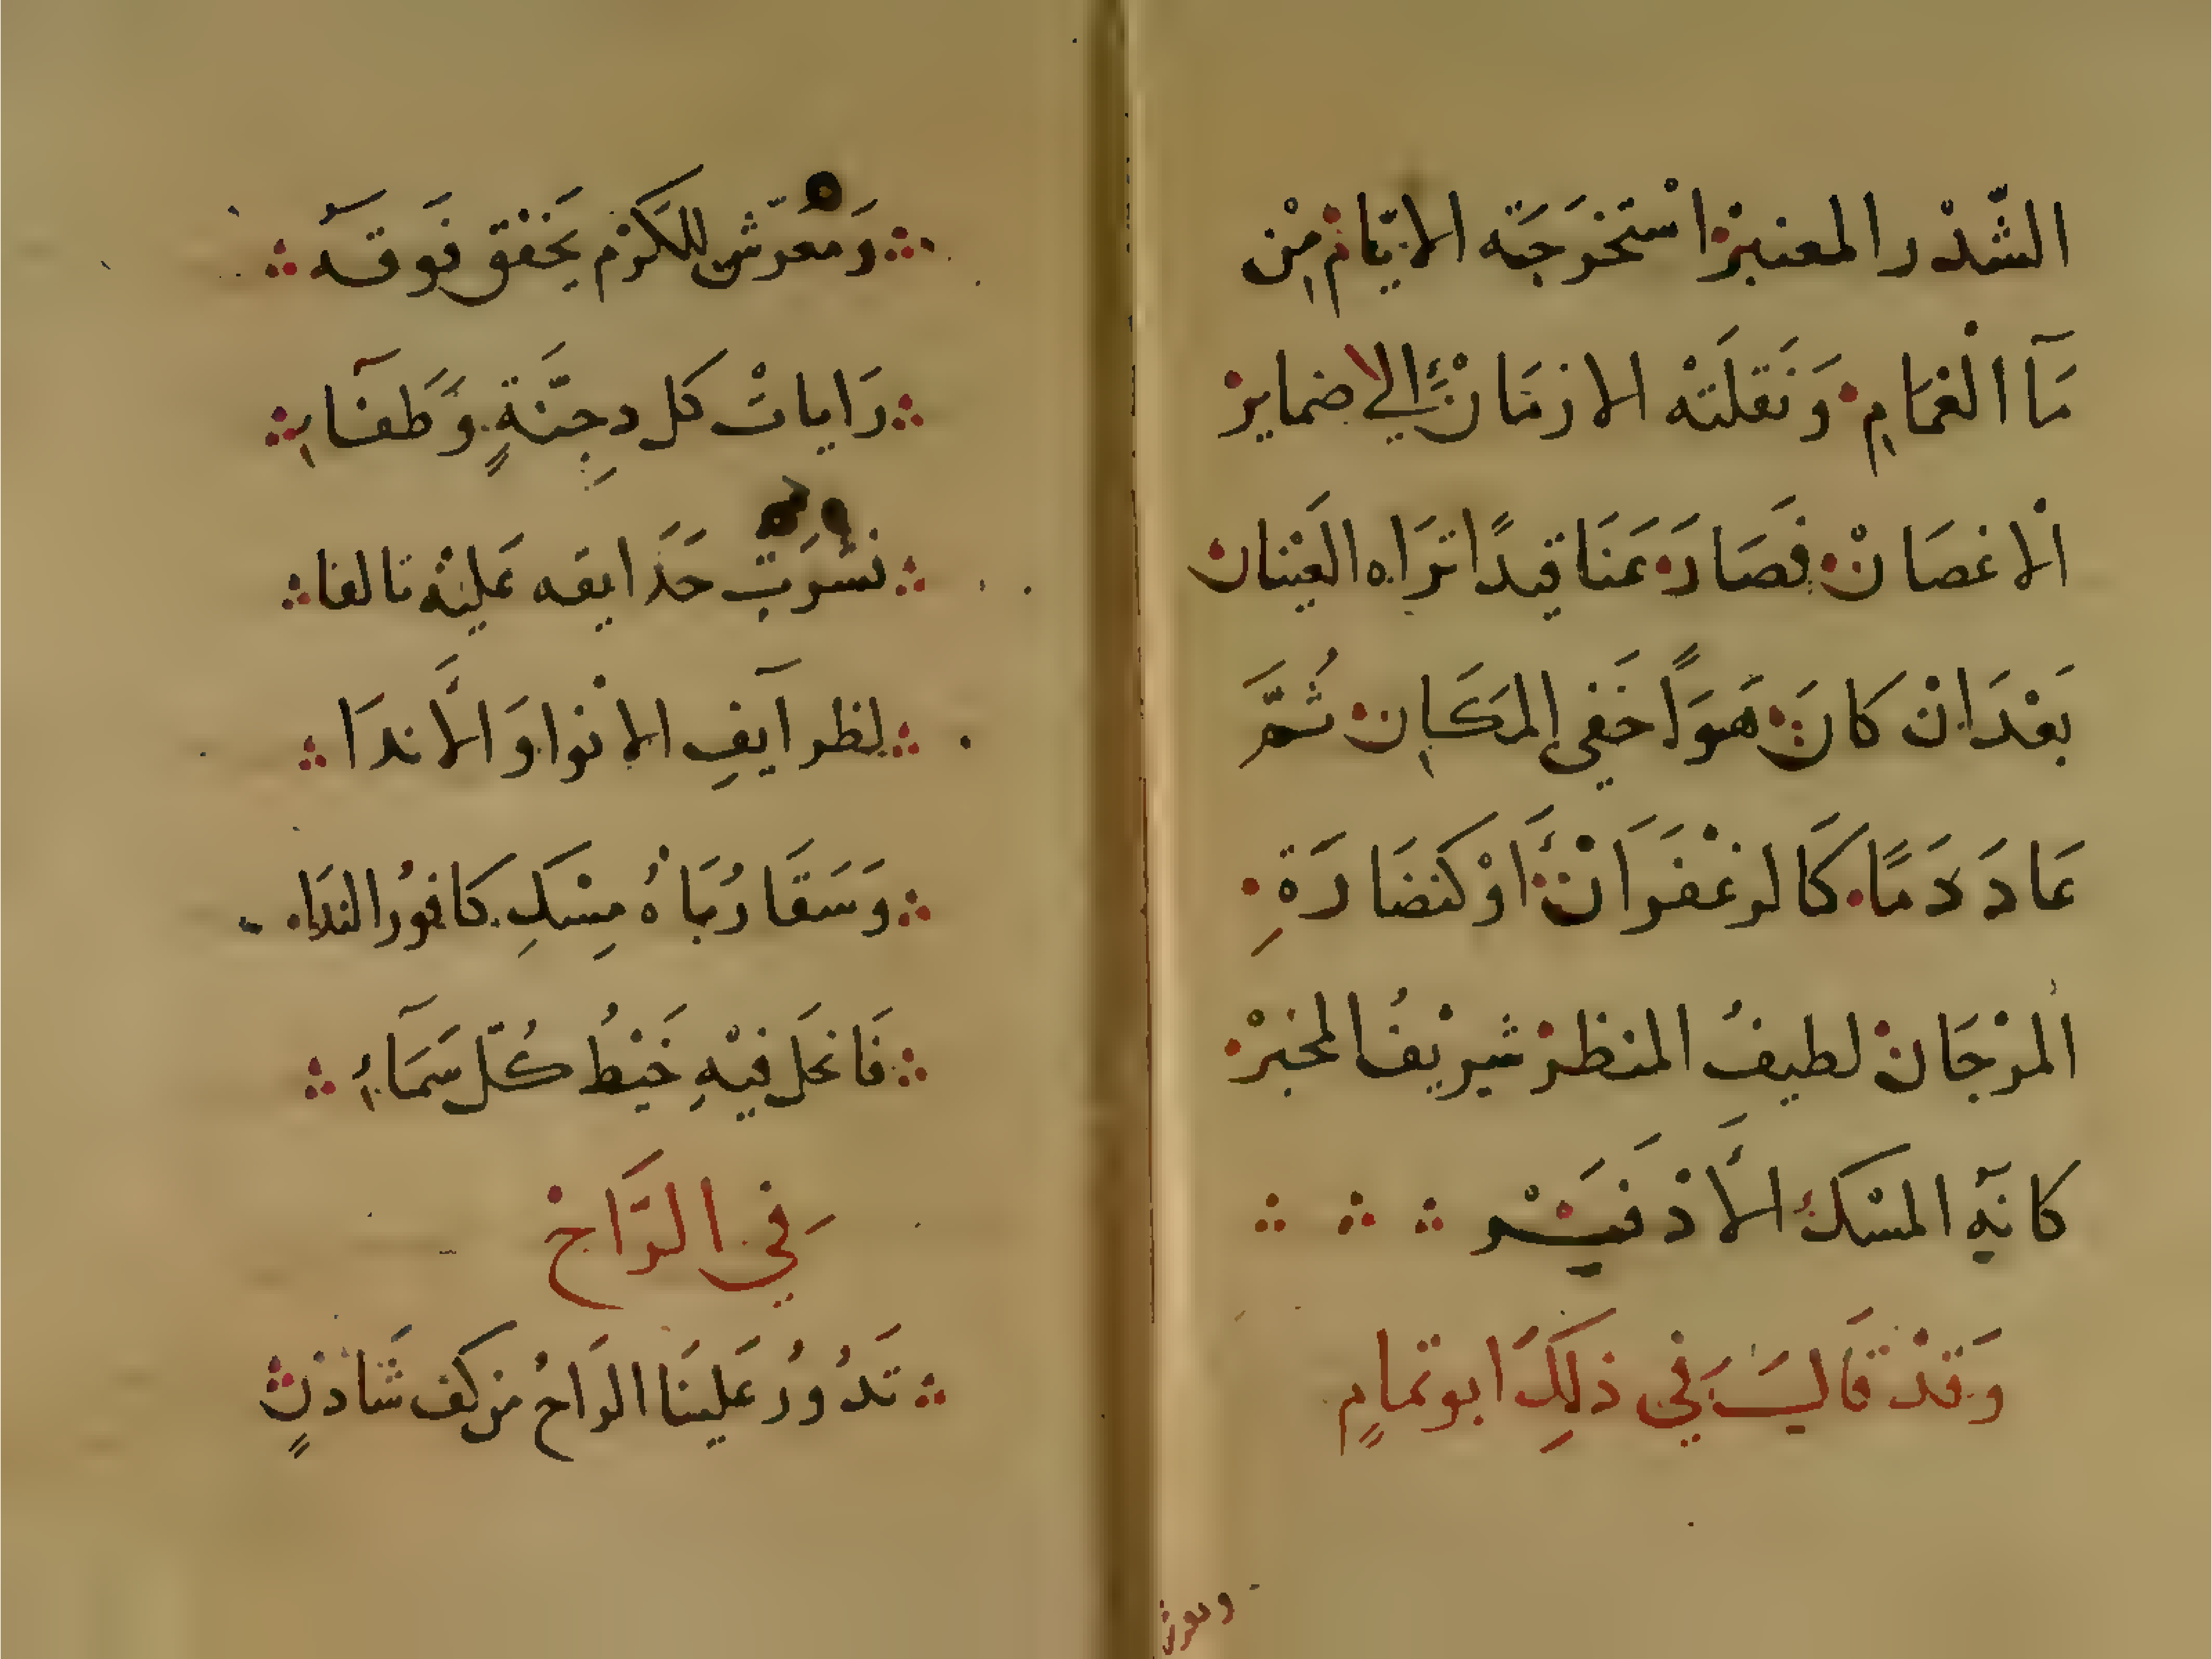 الشّذْر المعنبرْ اسْتَخرَجَته الايّامْ مِنْ
مَآ الْغمَامِ وَنَقَلَتْه الازمَانْ إلي ضمايرْ
الْاغصَانْ فَصَارَ عَنَاقيدًا تَرَاه العَيْنان
بَعْدَ انْ كَانَ هَوَاً خَفي المَكَانِ ثُمَّ
عَادَ دَمًا كَالزعْفَرَانْ أَوْ كَنضَارَةِ
المرْجَانْ لطيفُ المنظرْ شَرِيْفُ المخبرْ
كانهِ المسْك الأَذفَرْ
وَقَدْ قَالَ في ذلِكَ ابو تمامٍ
ومعرش
وَمُعَرّش للكَرْم يَخفْق فَوقَه
رَايات كل دجِنَّةٍ وَطفَآءِ
نَشَرَتِ حَدَايقه عَليْه تالفا
لظرآيفِ الانْوا وَالأندَا
وَسَقَا رُبَاهُ مِسْكِ كافورُ الندَا
فَانحَل فيْهِ خَيْطُ كُلّ سَمَآءِ
في الرَّاحْ
تَدُورُ عَلينَا الرَاحُ من كف شَادنٍ